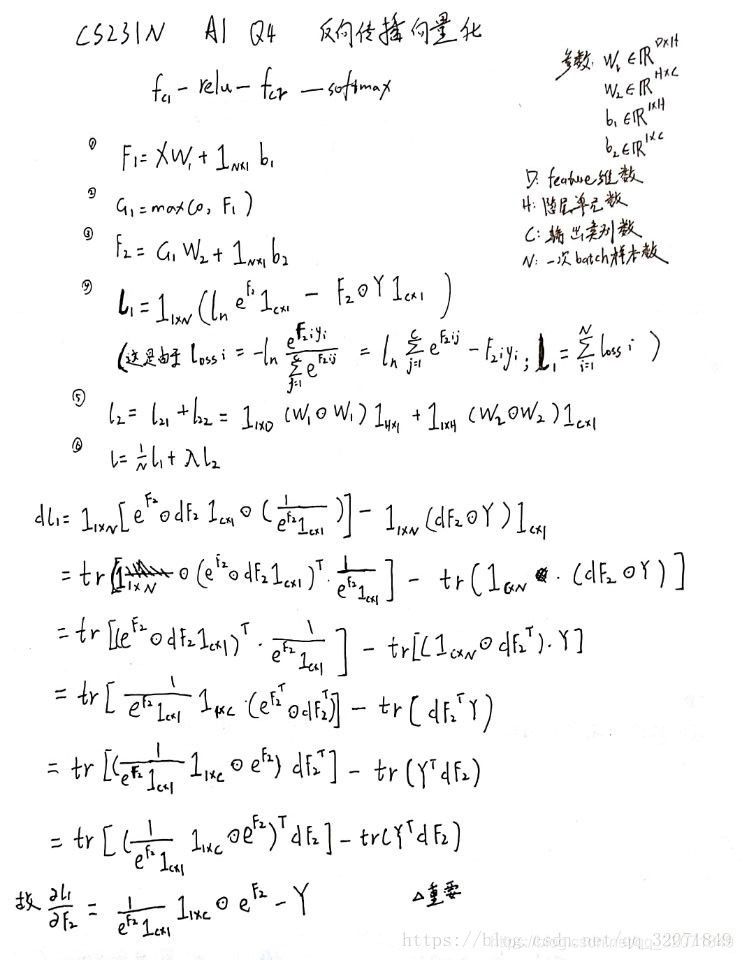 CS231N A1 Q4 反向传播向量化
fc1 - relu - fc2 — softmax
参数: W₁∈ℝ^{D×H}
W₂∈ℝ^{H×C}
b₁∈ℝ^{1×H}
b₂∈ℝ^{1×C}
D: feature维数
H: 隐层单元数
C: 输出类别数
N: 一次batch样本数
① F₁ = XW₁ + 1_{N×1} b₁
② G₁ = max(0, F₁)
③ F₂ = G₁W₂ + 1_{N×1} b₂
④ l₁ = 1_{1×N} (ln e^{F₂} 1_{C×1} - F₂⊙Y 1_{C×1})
(这是由于 loss i = -ln \frac{e^{F₂iyi}}{\sum_{j=1}^{C} e^{F₂ij}} = ln \sum_{j=1}^{C} e^{F₂ij} - F₂iyi; l₁ = \sum_{i=1}^{N} loss i)
⑤ l₂ = l₂₁ + l₂₂ = 1_{1×D} (W₁⊙W₁) 1_{H×1} + 1_{1×H} (W₂⊙W₂) 1_{C×1}
⑥ l = \frac{1}{N} l₁ + λl₂
dl₁ = 1_{1×N} [e^{F₂}⊙dF₂ 1_{C×1} ⊙ (\frac{1}{e^{F₂}1_{C×1}})] - 1_{1×N} (dF₂⊙Y) 1_{C×1}
= tr[ ⊙ (e^{F₂}⊙dF₂ 1_{C×1})^T · \frac{1}{e^{F₂}1_{C×1}}] - tr[1_{C×N} · (dF₂⊙Y)]
= tr[(e^{F₂}⊙dF₂ 1_{C×1})^T · \frac{1}{e^{F₂}1_{C×1}}] - tr[(1_{C×N}⊙dF₂^T)·Y]
= tr[\frac{1}{e^{F₂}1_{C×1}} 1_{1×C} · (e^{F₂^T}⊙dF₂^T)] - tr(dF₂^T Y)
= tr[(\frac{1}{e^{F₂}1_{C×1}} 1_{1×C} ⊙ e^{F₂}) dF₂^T] - tr(Y^T dF₂)
= tr[(\frac{1}{e^{F₂}1_{C×1}} 1_{1×C} ⊙ e^{F₂})^T dF₂] - tr(Y^T dF₂)
故 \frac{∂l₁}{∂F₂} = \frac{1}{e^{F₂}1_{C×1}} 1_{1×C} ⊙ e^{F₂} - Y △重要
https://blog.csdn.net/qq_32071849